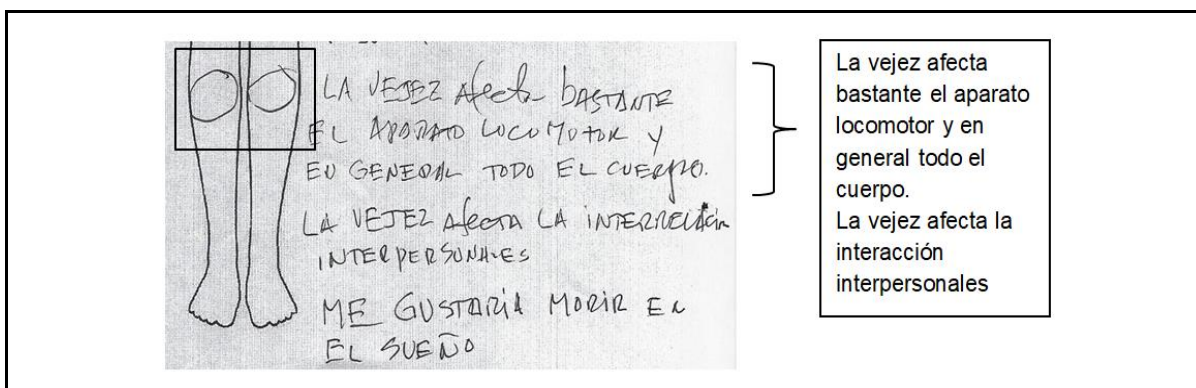 LA VEJEZ Afecta BASTANTE
EL APARATO LOCOMOTOR Y
EN GENERAL TODO EL CUERPO.
LA VEJEZ AfectA LA INTERRELACión
INTERPERSONALES
ME GUSTARÍA MORIR EN
EL SUEÑO
La vejez afecta
bastante el aparato
locomotor y en
general todo el
cuerpo.
La vejez afecta la
interacción
interpersonales